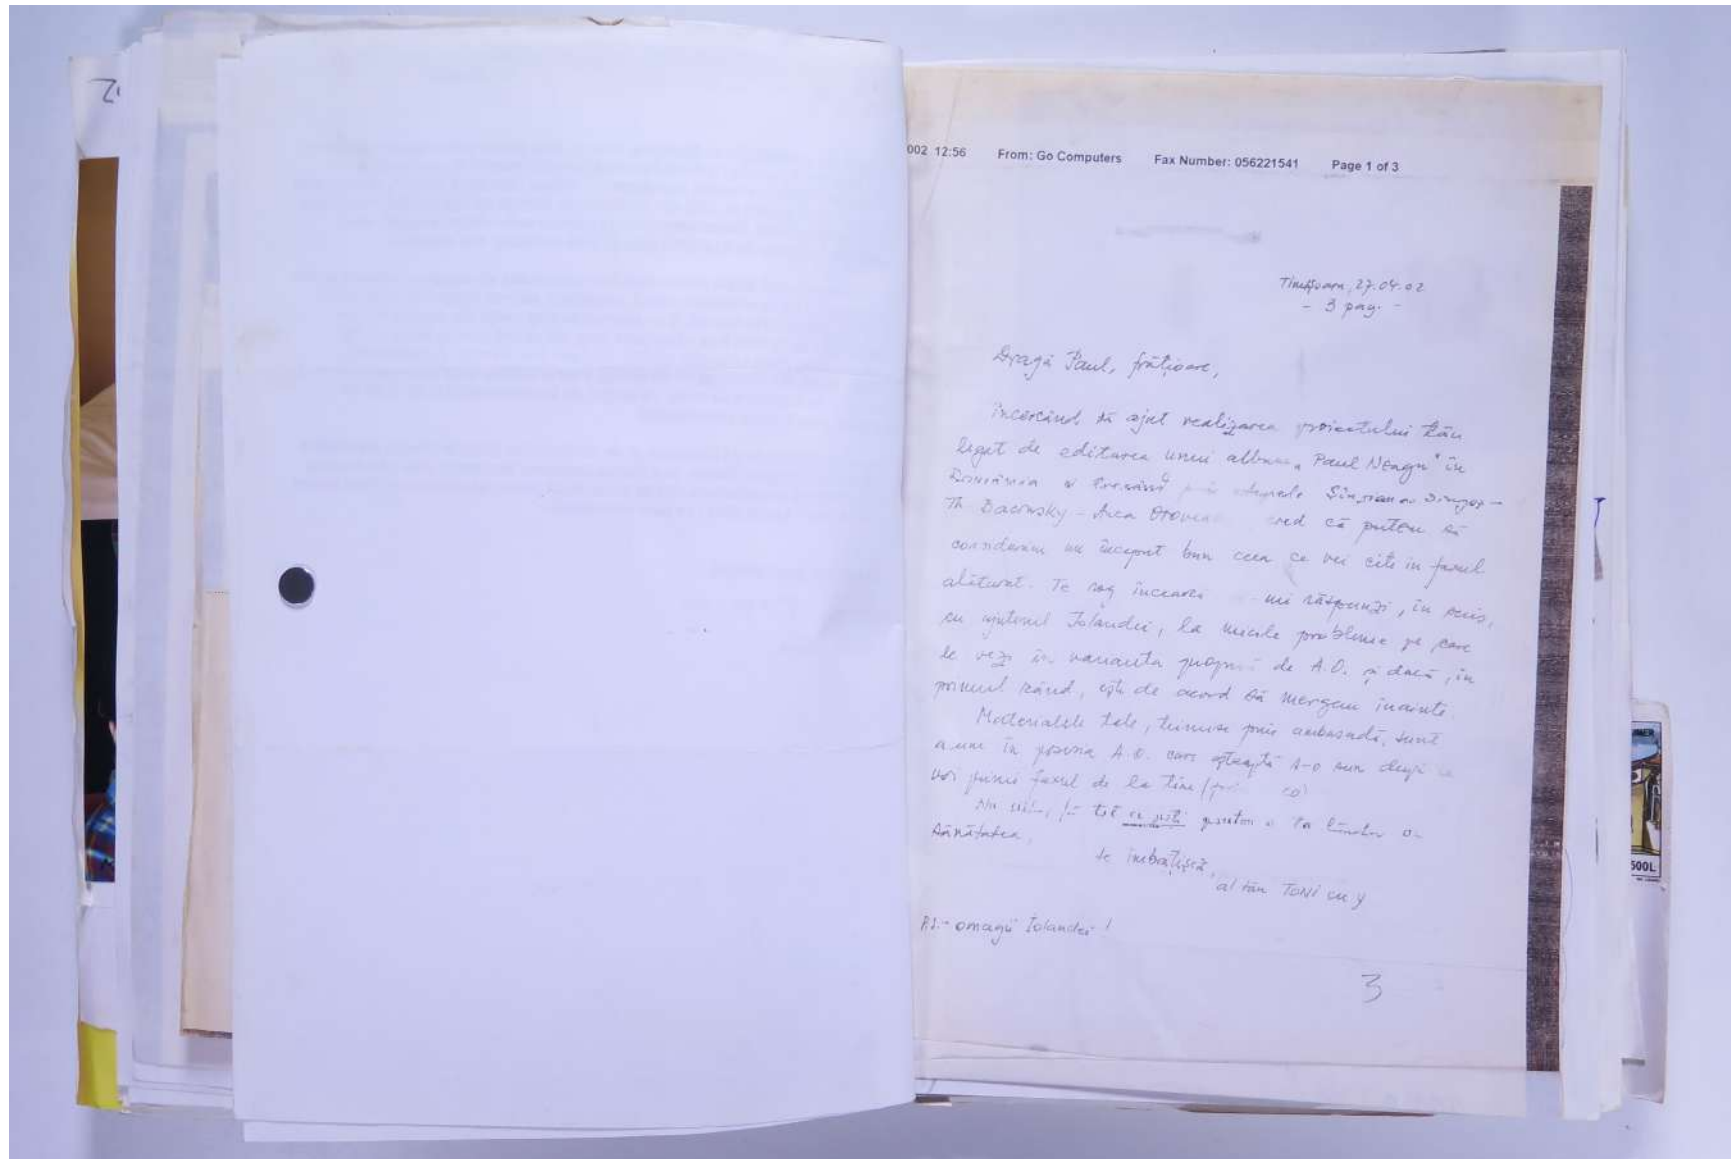 002 12:56 From: Go Computers Fax Number: 056221541 Page 1 of 3
Timișoara, 27.04.02
- 3 pag. -
Dragă Paul, frățioare,
încercând să ajut realizarea proiectului tău
legat de editarea unui album „Paul Neagu" în
România
Th Baconsky - Anca cred că putem să
considerăm un început bun ceea ce vei citi în faxul
alăturat. Te rog încearcă mi răspunzi, în scris,
cu ajutorul Iolandei, la micile probleme pe care
le vezi în varianta de A.O. și dacă, în
primul rând, ești de acord să mergem înainte.
Materialele tale, trimise prin ambasadă, sunt
acum în posesia A.O. care așteaptă s-o sun după ce
voi primi faxul de la tine
tot ce poți
sănătatea,
te îmbrățișează,
al tău TONI cu y
P.S. - omagii Iolandei!
3
500L